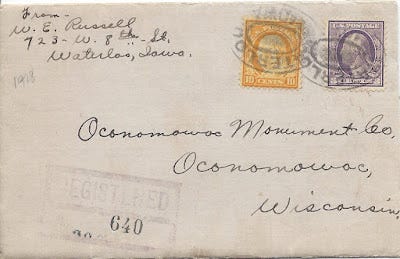 From-
W. E. Russell
723 - W. 8th St.
Waterloo, Iowa.
1918
10 CENTS 10
Oconomowoc Monument Co.
Oconomowoc,
Wisconsin.
REGISTERED
640